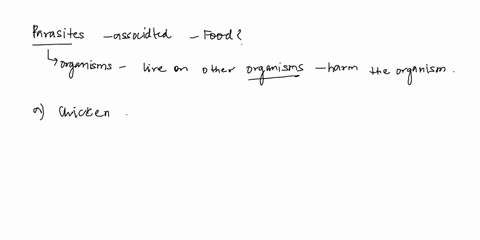 Parasites - associated - Food?
↳ organisms - live on other organisms - harm the organism.
a) Chicken .